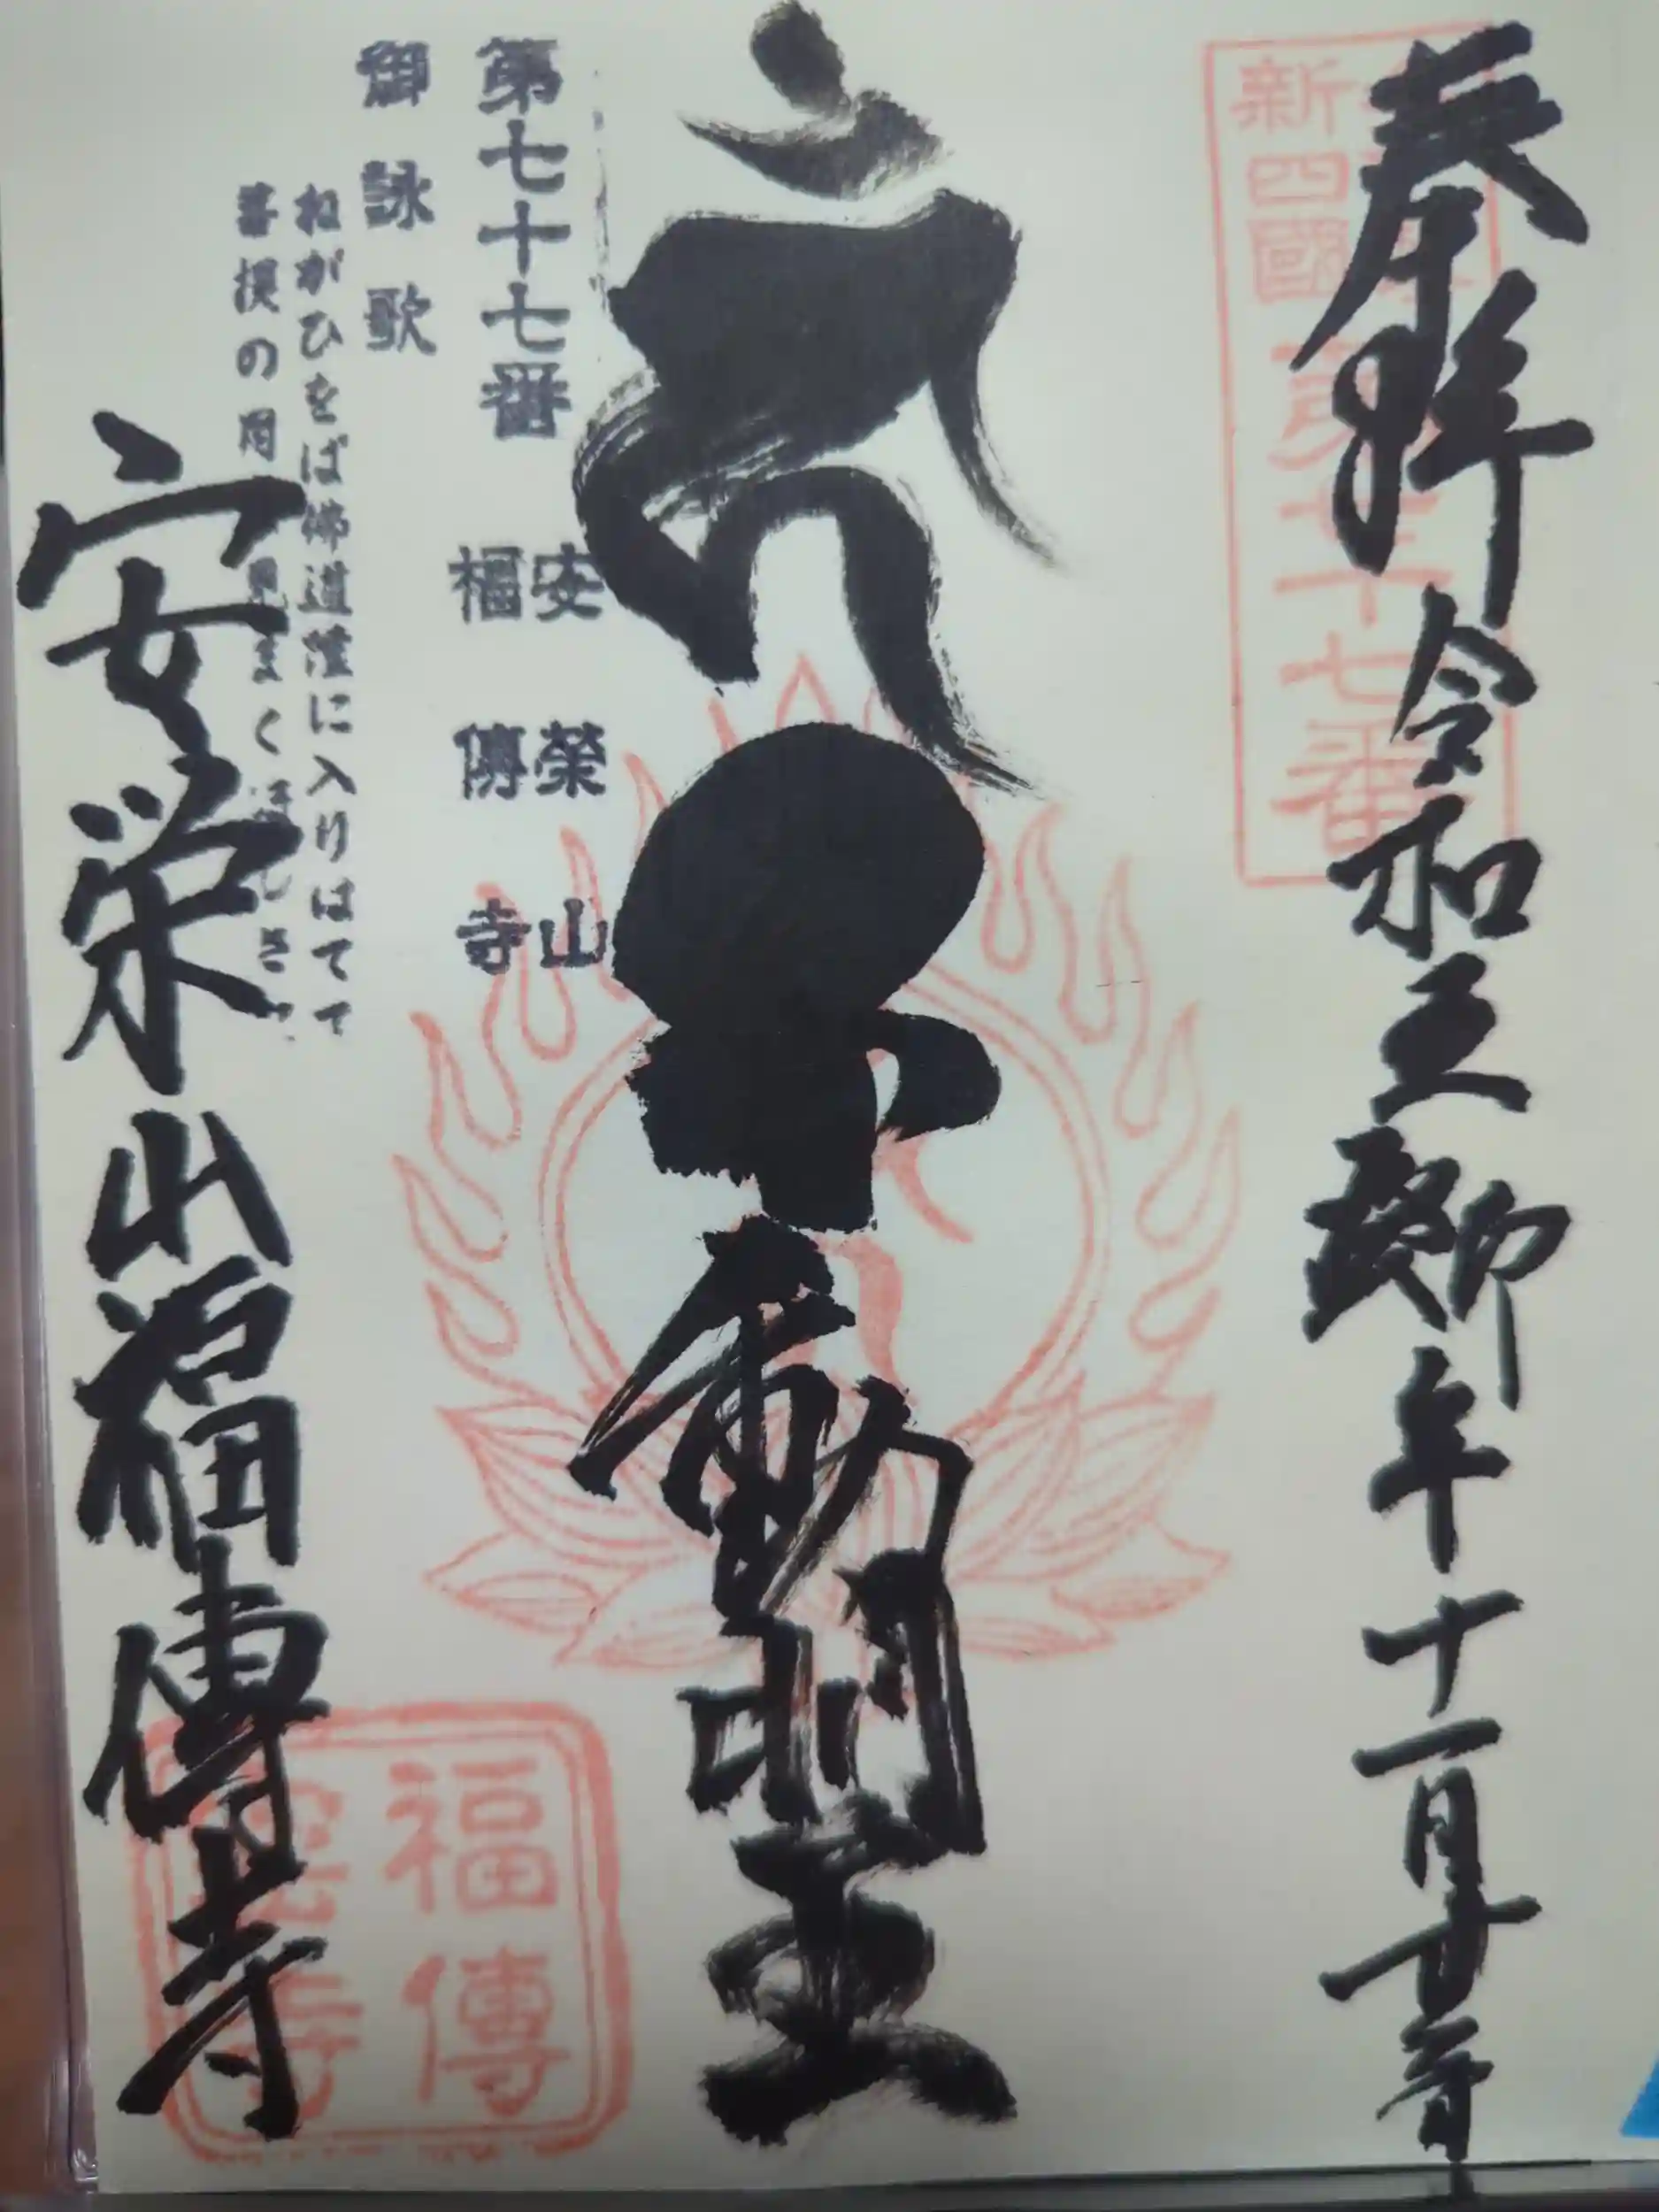 奉拝 令和五 卯年 十一月
新四國
第 十七番
不動明王
第七十七番
安榮山
福傳寺
御詠歌
ねがひをば佛道 に入りはてて
菩提の月 見まくほしさ
安栄山福傳寺
福傳
寺